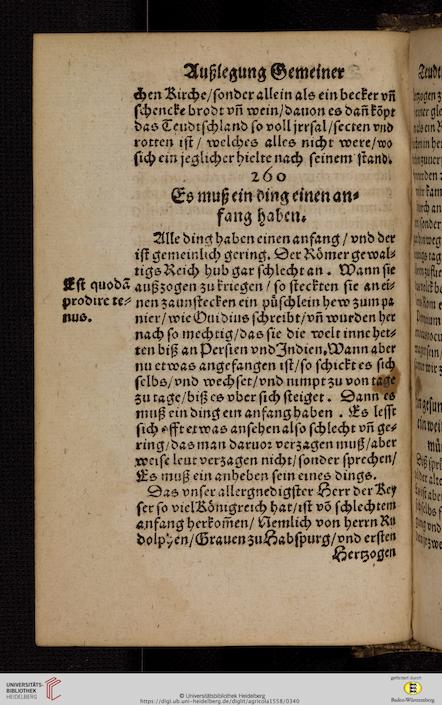 Außlegung Gemeiner
chen Kirche/sonder allein als ein becker vñ
schencke brodt vñ wein/dauon es dañ köpt
das Teudtschland so voll jrrsal/secten vnd
rotten ist / welches alles nicht were/wo
sich ein jeglicher hielte nach seinem stand.
260
Es muß ein ding einen an⸗
fang haben.
Alle ding haben einen anfang / vnd der
ist gemeinlich gering. Der Römer gewal⸗
tigs Reich hub gar schlecht an. Wann sie
Est quodã
außzogen zu kriegen / so steckten sie an ei⸗
prodire te⸗
nen zaunstecken ein püschlein hew zum pa
nus.
nier/wie Ouidius schreibt/vñ wurden her
nach so mechtig/das sie die welt inne het⸗
ten biß an Persien vnd Indien. Wann aber
nu etwas angefangen ist/so schickt es sich
selbs/vnd wechset/vnd nimpt zu von tage
zu tage/biß es vber sich steiget. Dann es
muß ein ding ein anfang haben. Es lesst
sich offt etwas ansehen also schlecht vñ ge⸗
ring/das man daruor verzagen muß/aber
weise leut verzagen nicht/sonder sprechen/
Es muß ein anheben sein eines dings.
Das vnser allergnedigster Herr der Key
ser so viel Königreich hat/ist võ schlechtem
anfang herkom̃en/Nemlich von herrn Ru
dolphen/Grauen zu Habspurg/vnd ersten
Hertzogen
UNIVERSITÄTS-
BIBLIOTHEK
HEIDELBERG
© Universitätsbibliothek Heidelberg
https://digi.ub.uni-heidelberg.de/diglit/agricola1558/0340
gefördert durch
Baden-Württemberg